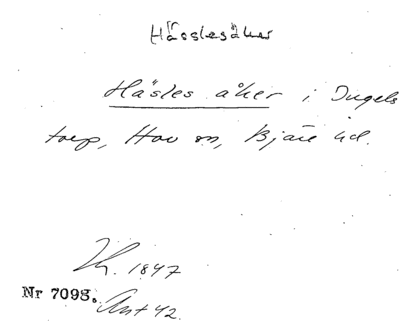 Hässlesåker
Häsles åker i Ingels
torp, Hov sn, Bjäre hd.
1847
Nr 7098. Ant 42.